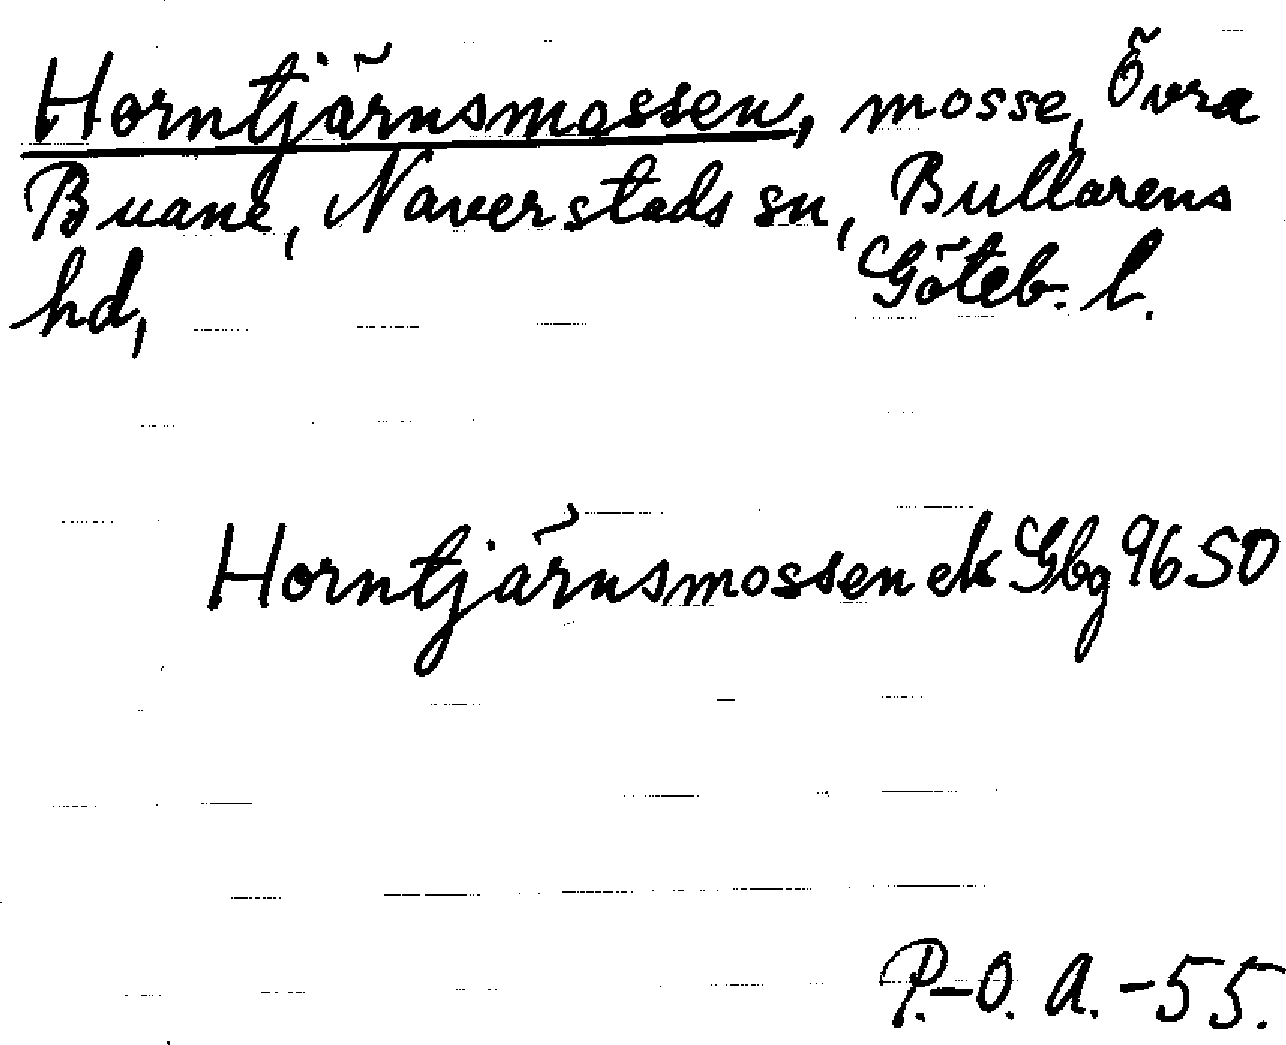 Horntjärnsmossen, mosse, Övra
Buane, Naverstads sn, Bullarens
hd, Göteb. l.
Horntjärnsmossen ek Gbg 9650
P.-O. A. -55.